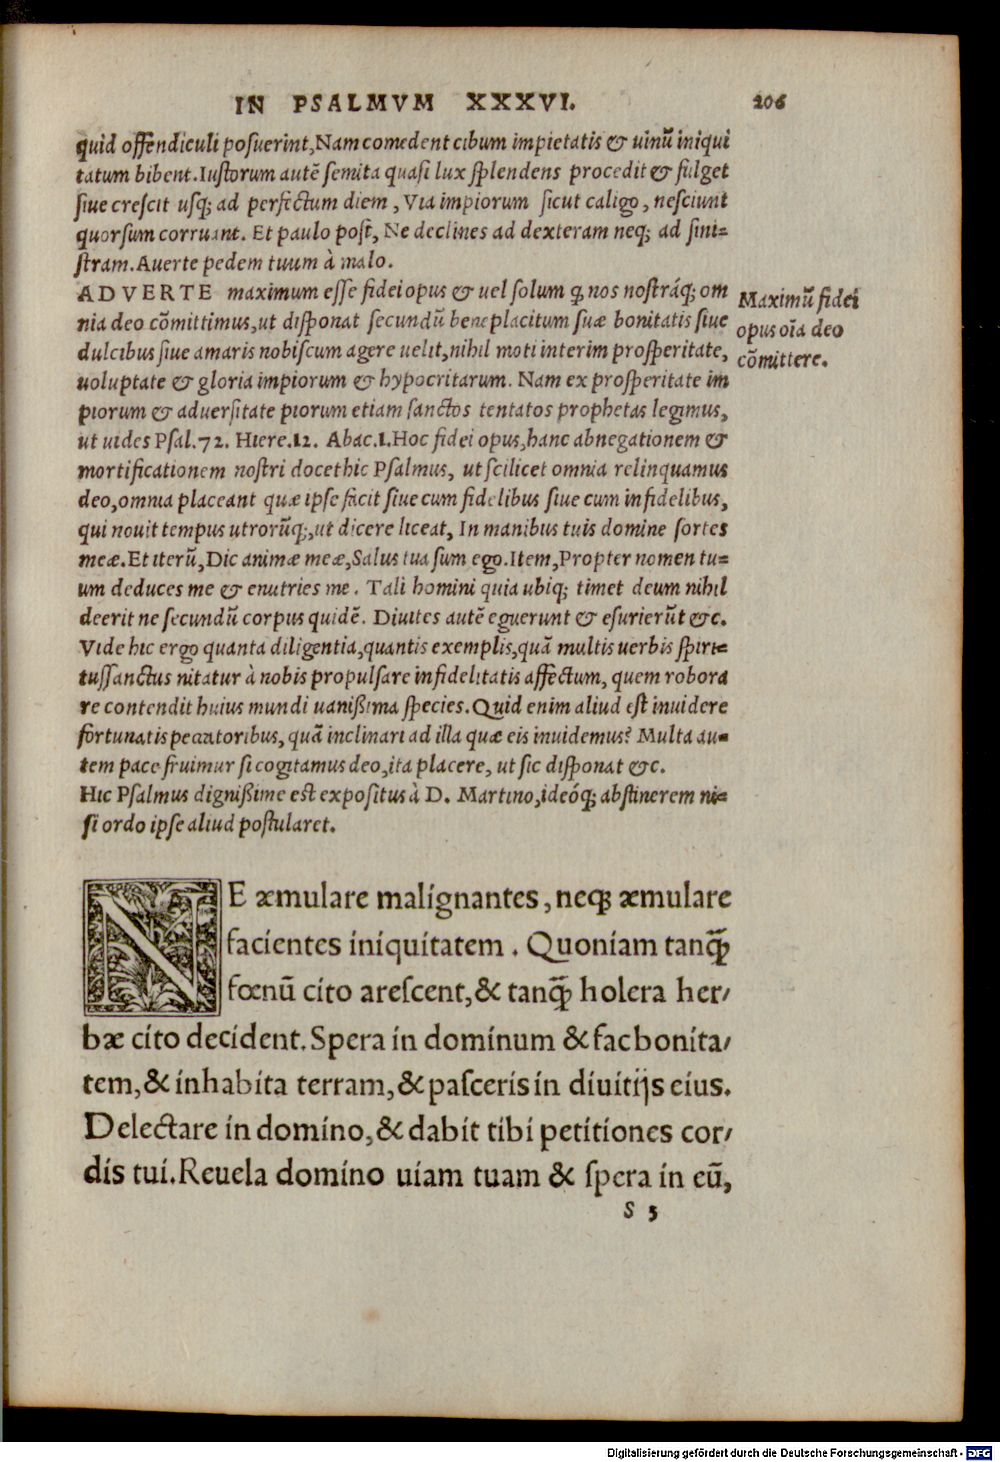 IN PSALMVM XXXVI. 206
quid offendiculi posuerint, Nam comedent cibum impietatis & uinũ iniqui
tatum bibent. Iustorum autẽ semita quasi lux splendens procedit & fulget
siue crescit usq; ad perfectum diem, Via impiorum sicut caligo, nesciunt
quorsum corruant. Et paulo post, Ne declines ad dexteram neq; ad sini=
stram. Auerte pedem tuum à malo.
ADVERTE maximum esse fidei opus & uel solum ꝙ nos nostráq; om
nia deo cõmittimus, ut disponat secundũ beneplacitum suæ bonitatis siue
dulcibus siue amaris nobiscum agere uelit, nihil moti interim prosperitate,
uoluptate & gloria impiorum & hypocritarum. Nam ex prosperitate im
piorum & aduersitate piorum etiam sanctos tentatos prophetas legimus,
ut uides Psal.72. Hiere.12. Abac.1. Hoc fidei opus, hanc abnegationem &
mortificationem nostri docet hic Psalmus, ut scilicet omnia relinquamus
deo, omnia placeant quæ ipse facit siue cum fidelibus siue cum infidelibus,
qui nouit tempus utrorũq;, ut dicere liceat, In manibus tuis domine sortes
meæ. Et iterũ, Dic animæ meæ, Salus tua sum ego. Item, Propter nomen tu=
um deduces me & enutries me. Tali homini quia ubiq; timet deum nihil
deerit ne secundũ corpus quidẽ. Diuites autẽ eguerunt & esurierũt &c.
Vide hic ergo quanta diligentia, quantis exemplis, quã multis uerbis spiri=
tussanctus nitatur à nobis propulsare infidelitatis affectum, quem robora
re contendit huius mundi uanißima species. Quid enim aliud est inuidere
fortunatis peccatoribus, quã inclinari ad illa quæ eis inuidemus? Multa au=
tem pace fruimur si cogitamus deo, ita placere, ut sic disponat &c.
Hic Psalmus dignißime est expositus à D. Martino, ideóq; abstinerem ni=
si ordo ipse aliud postularet.
Maximũ fidei
opus oĩa deo
cõmittere.
NE æmulare malignantes, neq; æmulare
facientes iniquitatem. Quoniam tanq̃
fœnũ cito arescent, & tanq̃ holera her/
bæ cito decident. Spera in dominum & fac bonita/
tem, & inhabita terram, & pasceris in diuitijs eius.
Delectare in domino, & dabit tibi petitiones cor/
dis tui. Reuela domino uiam tuam & spera in eũ,
S 5
Digitalisierung gefördert durch die Deutsche Forschungsgemeinschaft - DFG